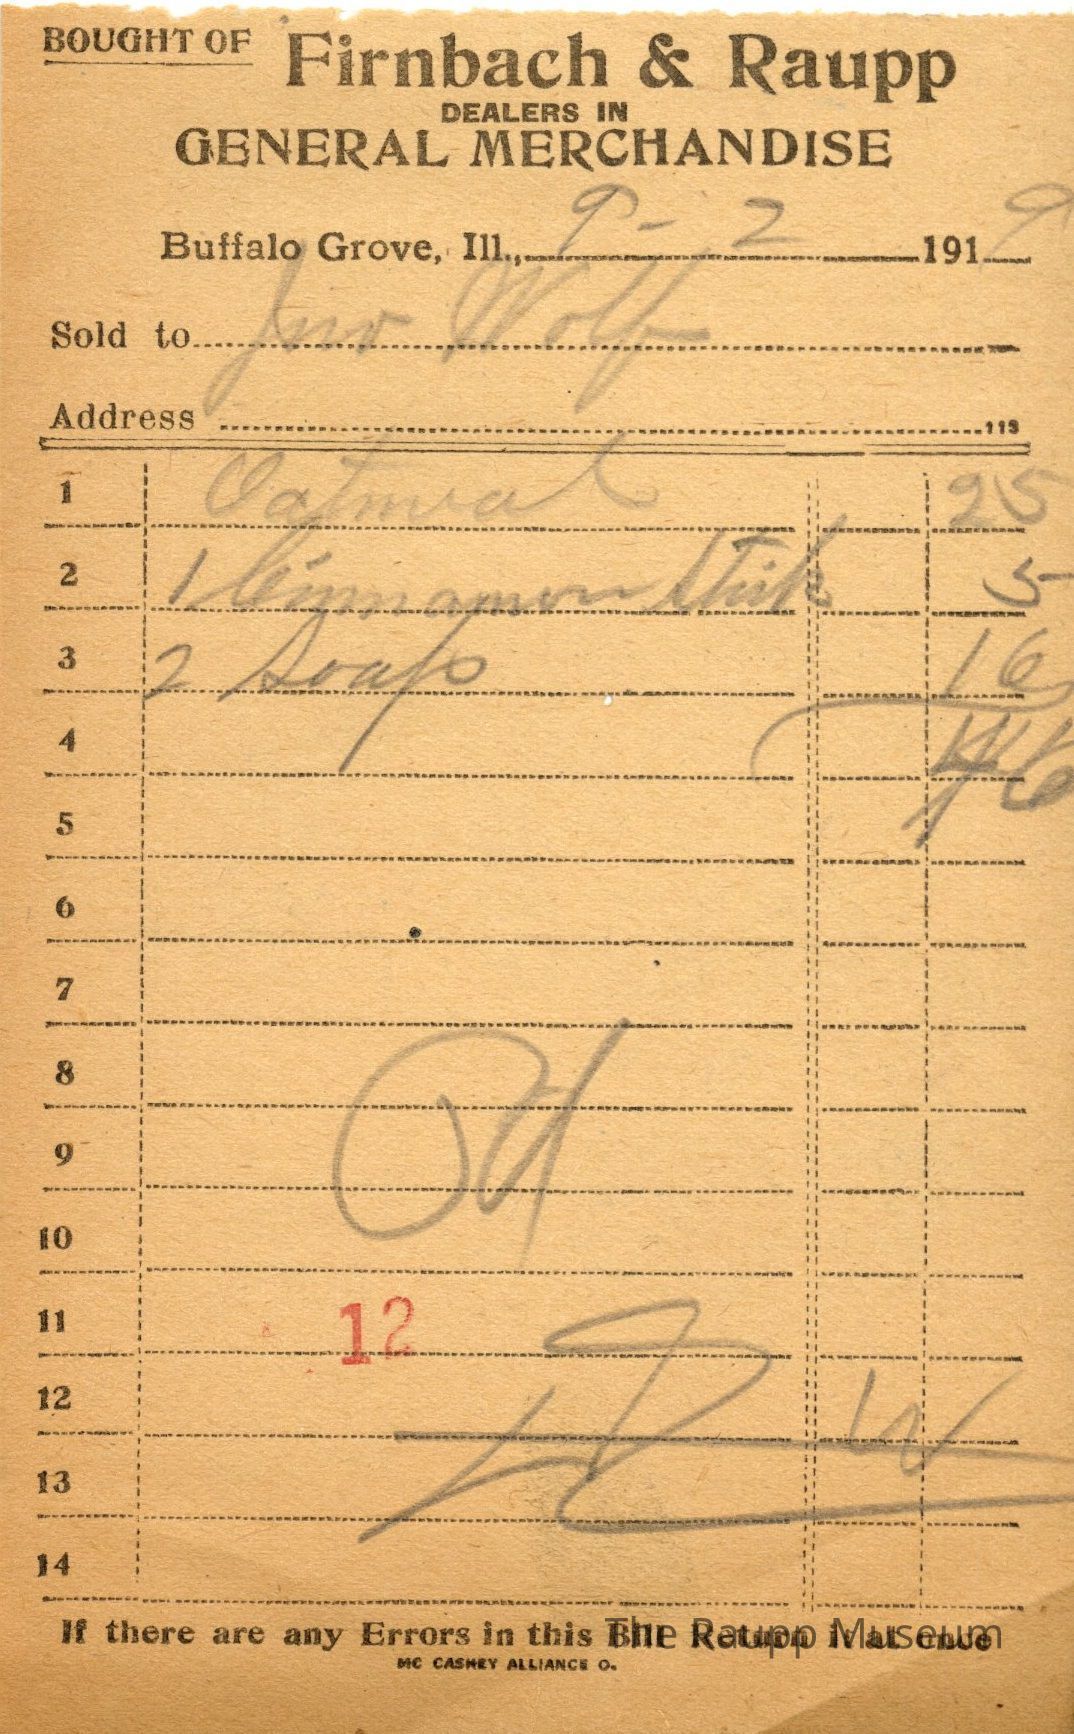 BOUGHT OF Firnbach & Raupp
DEALERS IN
GENERAL MERCHANDISE
Buffalo Grove, Ill., 9 - 2 1919
Sold to Jno Wolf
Address 113
1 Oatmeal 25
2 1 Cinnamon Stick 5
3 2 Soap 16
4 46
5
6
7
8
9
10
11 12
12
13
14
If there are any Errors in this Bill Return it at once
The Raupp Museum
MC CASKEY ALLIANCE O.